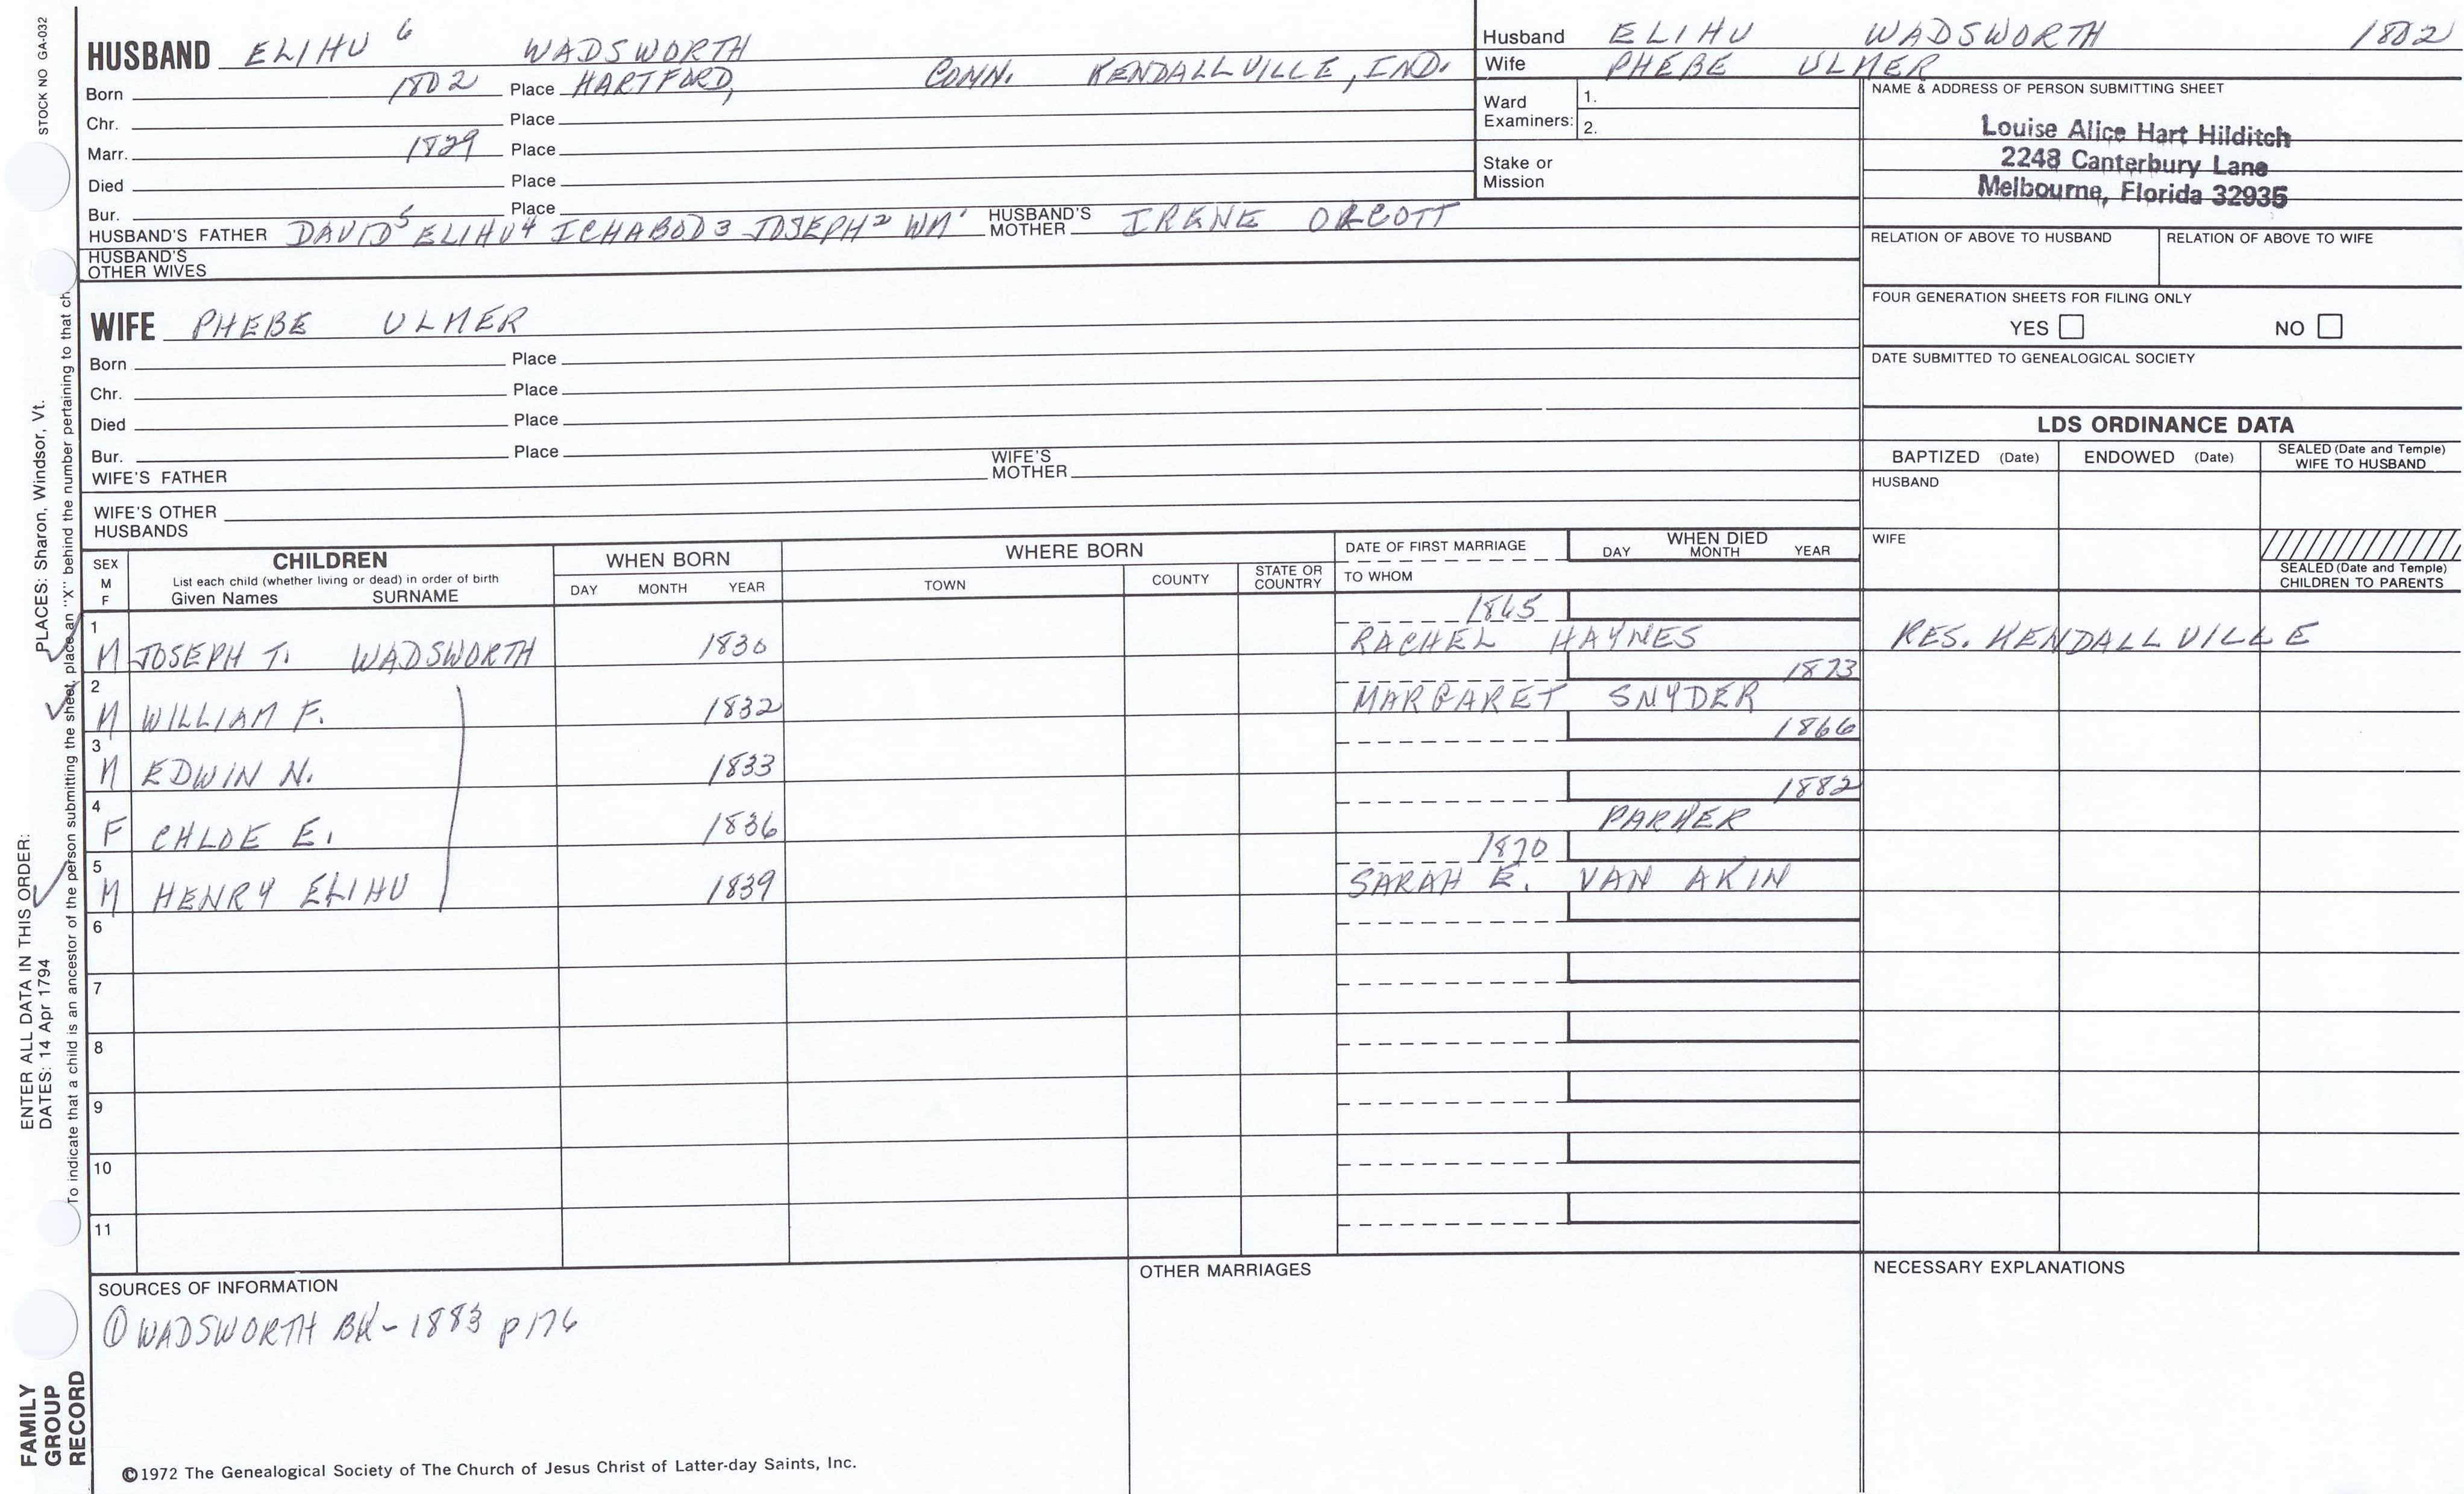 STOCK NO GA-032
HUSBAND ELIHU 6 WADSWORTH
Born 1802 Place HARTFORD, CONN. KENDALLVILLE, IND.
Chr. Place
Marr. 1829 Place
Died Place
Bur. Place
HUSBAND'S FATHER DAVID 5 ELIHU 4 ICHABOD 3 JOSEPH 2 WM 1 HUSBAND'S MOTHER IRENE ORCOTT
HUSBAND'S OTHER WIVES
Husband ELIHU WADSWORTH 1802
Wife PHEBE ULMER
Ward Examiners: 1.
2.
Stake or Mission
NAME & ADDRESS OF PERSON SUBMITTING SHEET
Louise Alice Hart Hilditch
2248 Canterbury Lane
Melbourne, Florida 32935
RELATION OF ABOVE TO HUSBAND RELATION OF ABOVE TO WIFE
FOUR GENERATION SHEETS FOR FILING ONLY
YES NO
DATE SUBMITTED TO GENEALOGICAL SOCIETY
WIFE PHEBE ULMER
Born Place
Chr. Place
Died Place
Bur. Place
WIFE'S FATHER WIFE'S MOTHER
WIFE'S OTHER HUSBANDS
LDS ORDINANCE DATA
BAPTIZED (Date) ENDOWED (Date) SEALED (Date and Temple) WIFE TO HUSBAND
HUSBAND
WIFE
SEALED (Date and Temple) CHILDREN TO PARENTS
SEX M F
CHILDREN
List each child (whether living or dead) in order of birth
Given Names SURNAME
WHEN BORN
DAY MONTH YEAR
WHERE BORN
TOWN COUNTY STATE OR COUNTRY
DATE OF FIRST MARRIAGE
TO WHOM
WHEN DIED
DAY MONTH YEAR
1 1865
M JOSEPH T. WADSWORTH 1830 RACHEL HAYNES RES. KENDALLVILLE
2 1873
M WILLIAM F. 1832 MARGARET SNYDER
3 1866
M EDWIN N. 1833
4 1882
F CHLOE E. 1836 PARKER
5 1870
M HENRY ELIHU 1839 SARAH E. VAN AKIN
6
7
8
9
10
11
SOURCES OF INFORMATION
① WADSWORTH BK - 1883 p 176
OTHER MARRIAGES
NECESSARY EXPLANATIONS
©1972 The Genealogical Society of The Church of Jesus Christ of Latter-day Saints, Inc.
ENTER ALL DATA IN THIS ORDER:
DATES: 14 Apr 1794 PLACES: Sharon, Windsor, Vt.
To indicate that a child is an ancestor of the person submitting the sheet, place an "X" behind the number pertaining to that ch
FAMILY GROUP RECORD